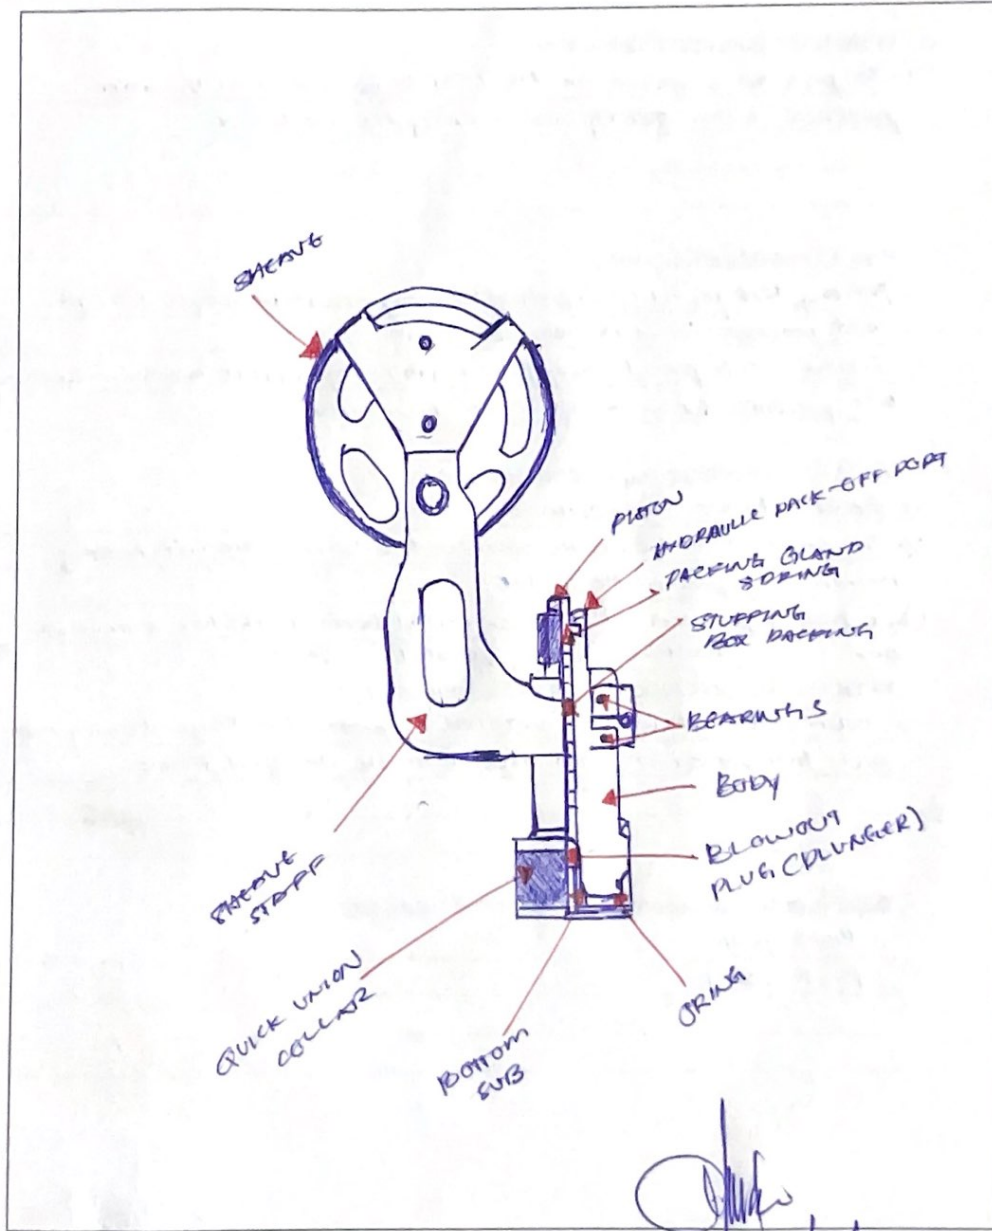 SHEAVE
PISTON
HYDRAULIC PACK-OFF PORT
PACKING GLAND
SPRING
STUFFING
BOX PACKING
BEARINGS
BODY
BLOWOUT
PLUG (PLUNGER)
SHEAVE
STAFF
QUICK UNION
COLLAR
BOTTOM
SUB
ORING